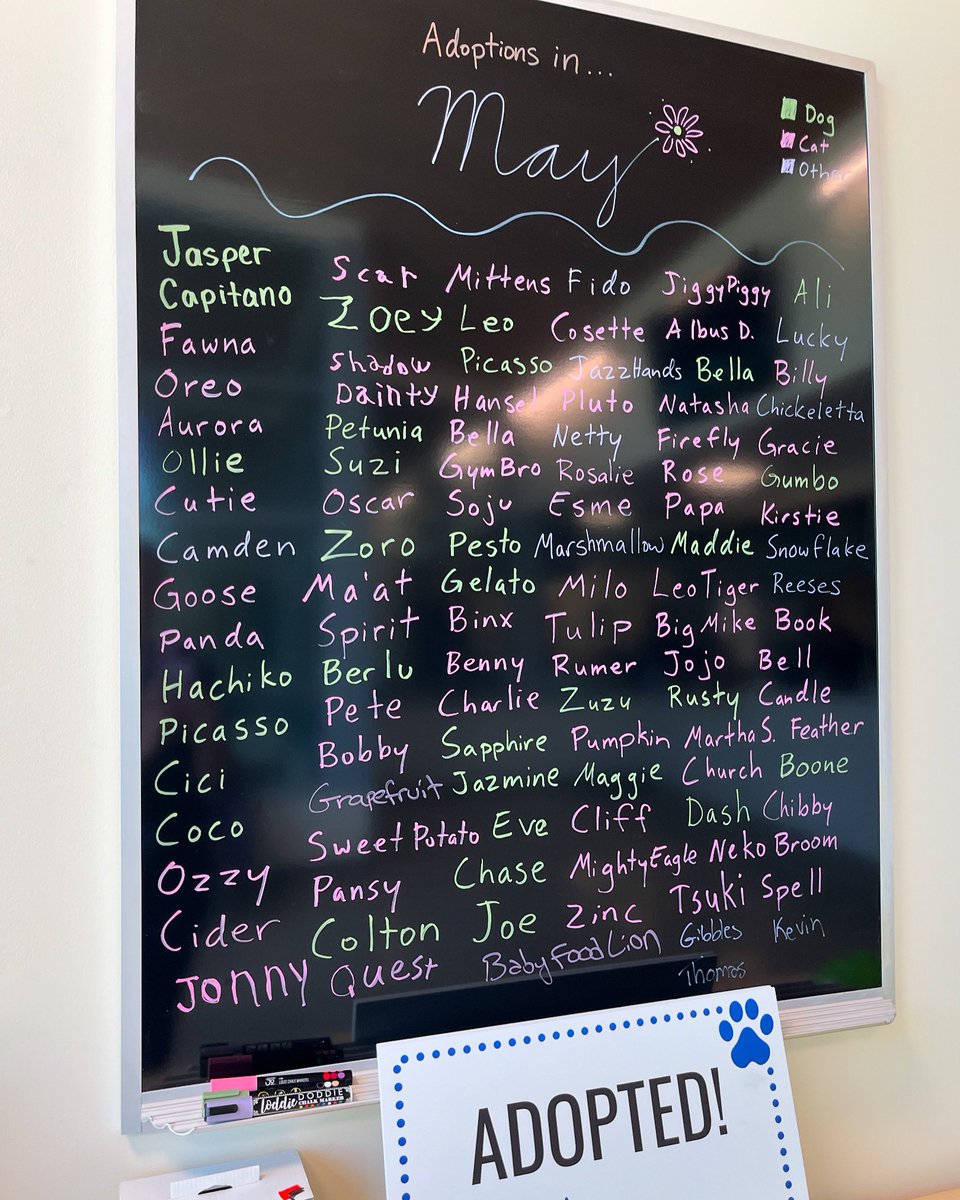 Adoptions in...
May
Dog
Cat
Other
Jasper
Capitano
Fawna
Oreo
Aurora
Ollie
Cutie
Camden
Goose
Panda
Hachiko
Picasso
Cici
Coco
Ozzy
Cider
Jonny Quest
Scar
Zoey
Shadow
Dainty
Petunia
Suzi
Oscar
Zoro
Ma'at
Spirit
Berlu
Pete
Bobby
Grapefruit
Sweet Potato
Pansy
Colton
Mittens
Leo
Picasso
Hansel
Bella
GymBro
Soju
Pesto
Gelato
Binx
Benny
Charlie
Sapphire
Jazmine
Eve
Chase
Joe
Baby Food Lion
Fido
Cosette
JazzHands
Pluto
Netty
Rosalie
Esme
Marshmallow
Milo
Tulip
Rumer
Zuzu
Pumpkin
Maggie
Cliff
MightyEagle
Zinc
JiggyPiggy
Albus D.
Bella
Natasha
Firefly
Rose
Papa
Maddie
LeoTiger
Big Mike
Jojo
Rusty
Martha S.
Church
Dash
Neko
Tsuki
Gibbles
Thomas
Ali
Lucky
Billy
Chickeletta
Gracie
Gumbo
Kirstie
Snowflake
Reeses
Book
Bell
Candle
Feather
Boone
Chibby
Broom
Spell
Kevin
ADOPTED!